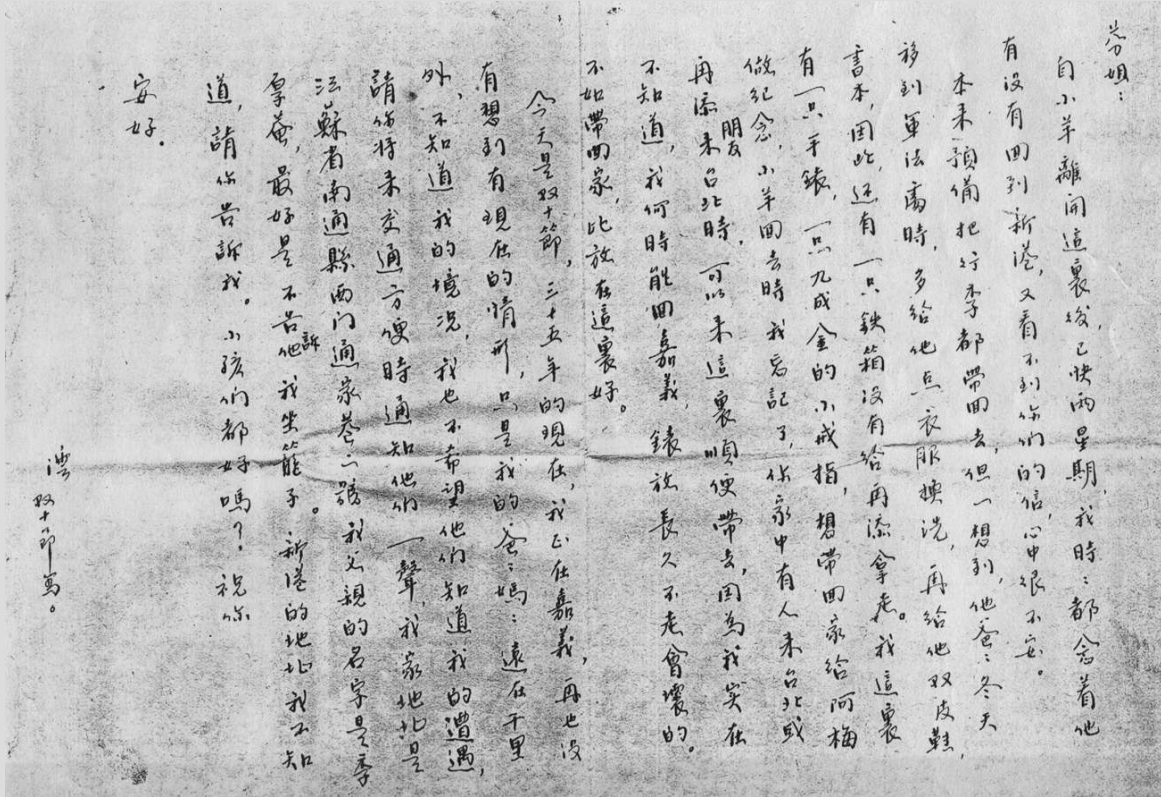 芬姐：
自小羊離開這裏後，已快两星期，我時：都念着他
有没有回到新港，又看不到你們的信，心中很不安。
本来預備把行李都帶回去，但一想到，他爸：冬天
移到軍法處時，多給他点衣服換洗，再給他双皮鞋，
書本，因此，还有一只鉄箱没有給再添拿走。我這裏
有一只手錶，一只九成金的小戒指，想帶回家給阿梅
做纪念，小羊回去時我忘記了，你家中有人来台北或
再添朋友来台北時，可以来這裏順便帶去，因為我实在
不知道，我何時能回嘉義，錶放長久不走會壞的。
不如帶回家，比放在這裏好。
今天是双十節，三十五年的現在，我正在嘉義，再也没
有想到有現在的情形，只是我的爸：媽：遠在千里
外，不知道我的境况，我也不希望他們知道我的遭遇，
請你将来交通方便時通知他們一聲，我家地址是
江蘇省南通縣西门通家巷六號我父親的名字是季
厚菴，最好是不告訴他我坐籠子。新港的地址我不知
道，請你告訴我。小孩们都好嗎？祝你
安好。
澐 双十節寫。